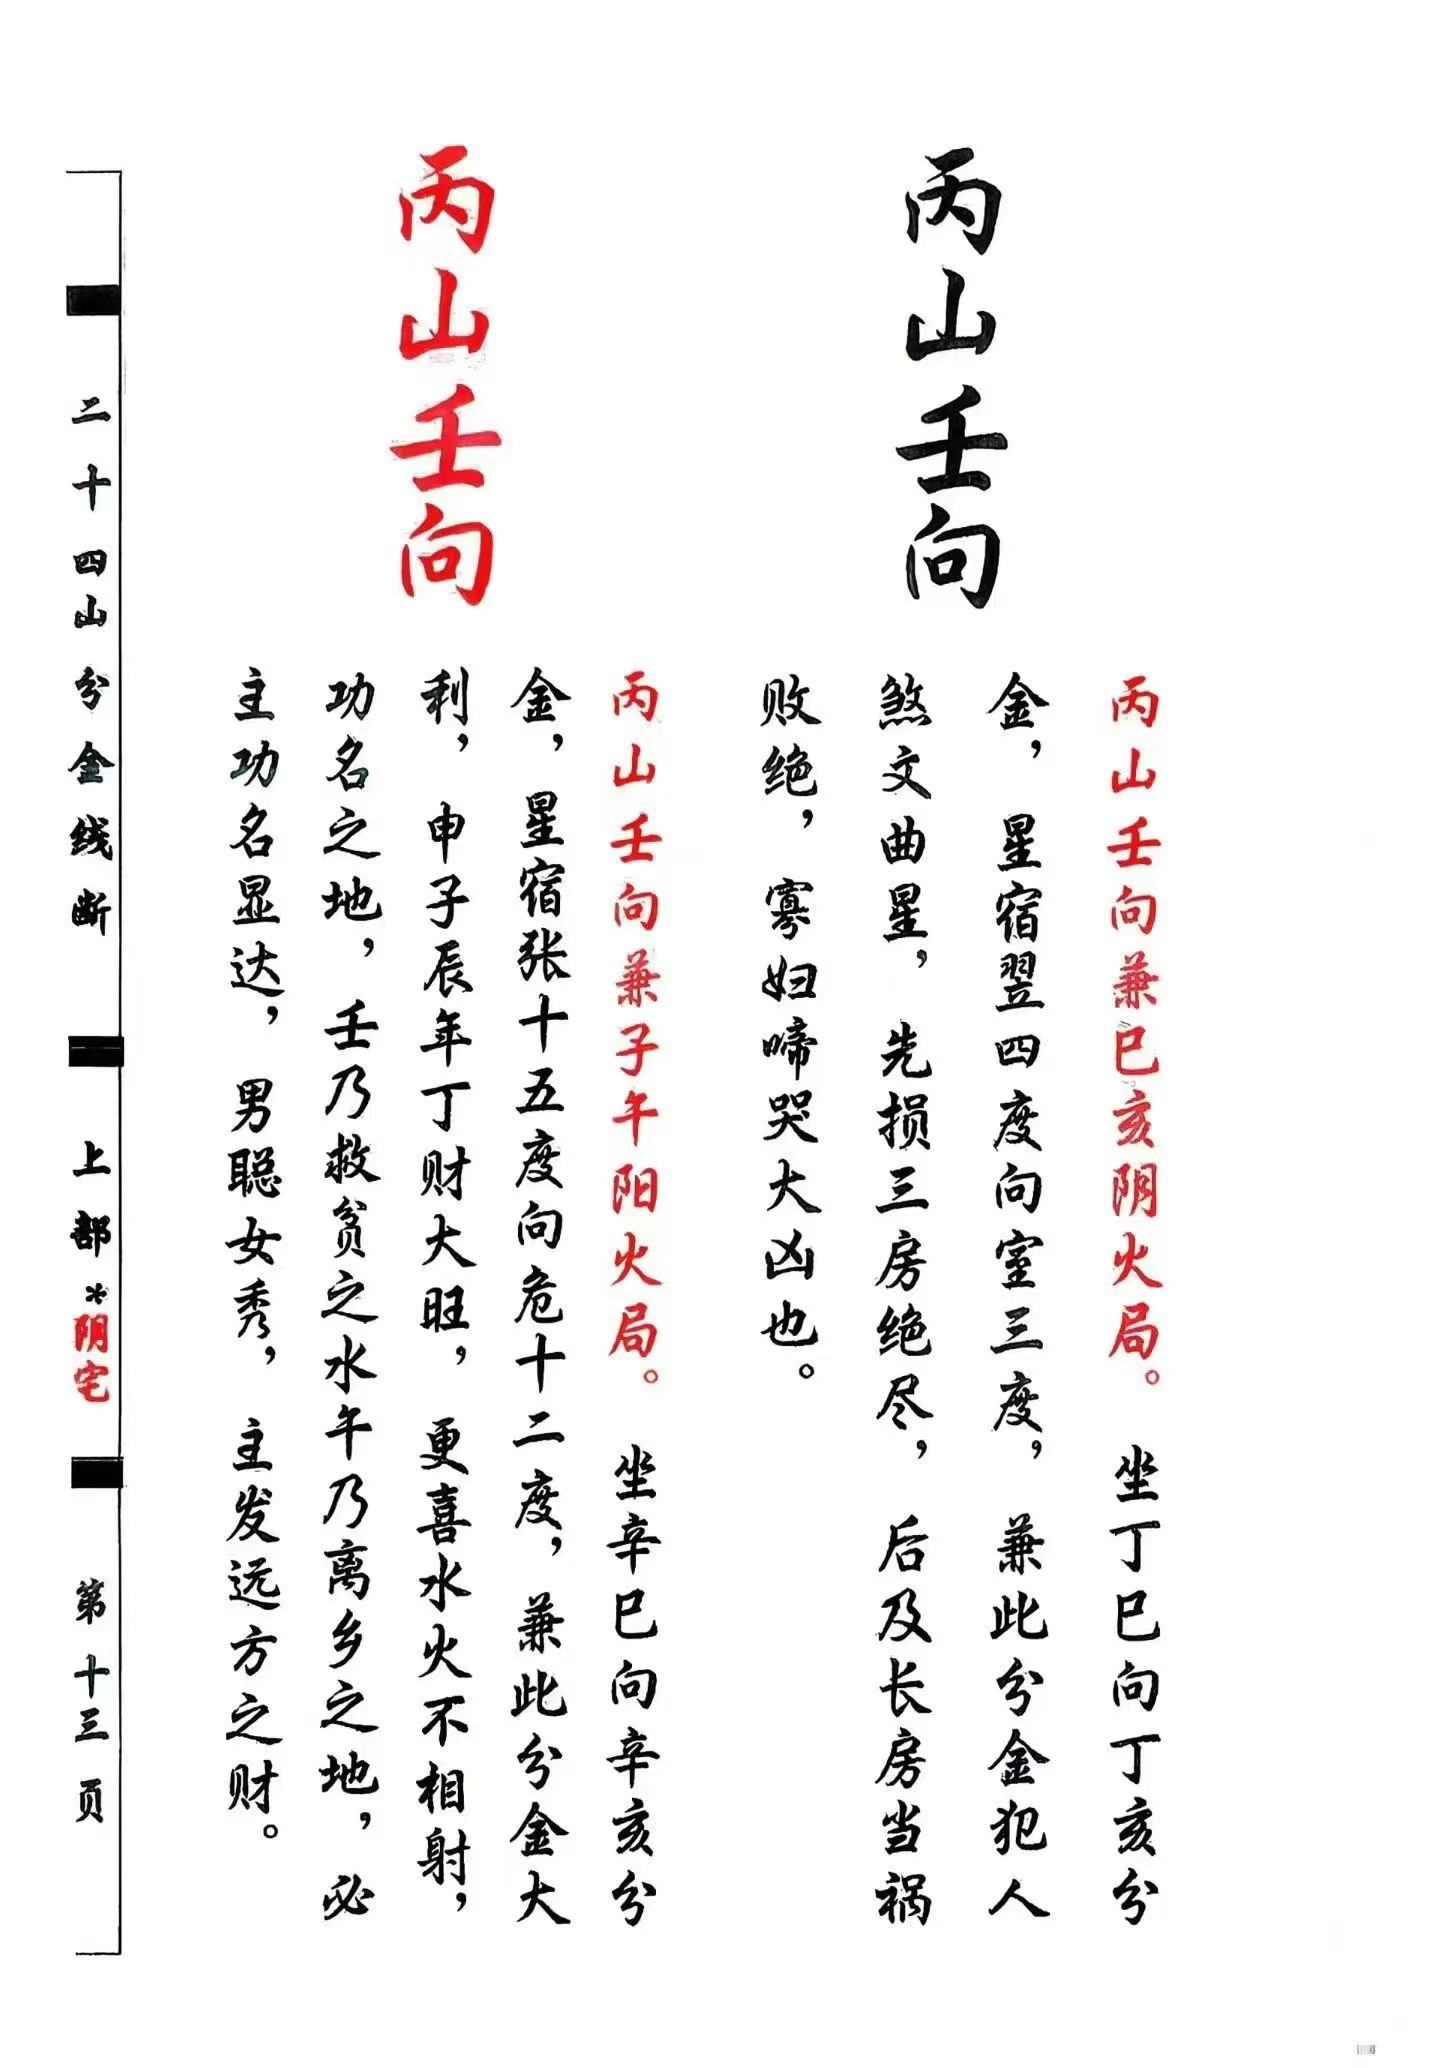 丙山壬向
丙山壬向兼巳亥阴火局。坐丁巳向丁亥分
金，星宿翌四度向室三度，兼此分金犯人
煞文曲星，先损三房绝尽，后及长房当祸
败绝，寡妇啼哭大凶也。
丙山壬向
丙山壬向兼子午阳火局。坐辛巳向辛亥分
金，星宿张十五度向危十二度，兼此分金大
利，申子辰年丁财大旺，更喜水火不相射，
功名之地，壬乃救贫之水午乃离乡之地，必
主功名显达，男聪女秀，主发远方之财。
二十四山分金线断 上部*阴宅 第十三页